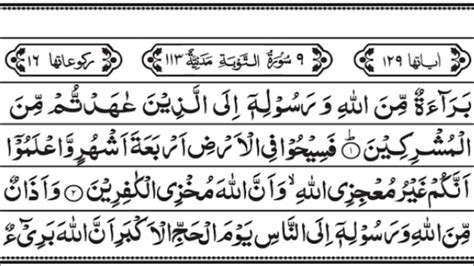 اٰیاتها ١٢٩ ٩ سُوْرَةُ التَّوْبَةِ مَدَنِیَّةٌ ١١٣ رکوعاتها ١٦
بَرَآءَةٌ مِّنَ اللّٰهِ وَ رَسُوْلِهٖۤ اِلَی الَّذِیْنَ عٰهَدْتُّمْ مِّنَ
الْمُشْرِكِیْنَ ۱ فَسِیْحُوْا فِی الْاَرْضِ اَرْبَعَةَ اَشْهُرٍ وَّ اعْلَمُوْۤا
اَنَّكُمْ غَیْرُ مُعْجِزِی اللّٰهِ ۙ وَ اَنَّ اللّٰهَ مُخْزِی الْكٰفِرِیْنَ ۲ وَ اَذَانٌ
مِّنَ اللّٰهِ وَ رَسُوْلِهٖۤ اِلَی النَّاسِ یَوْمَ الْحَجِّ الْاَكْبَرِ اَنَّ اللّٰهَ بَرِیْٓءٌ